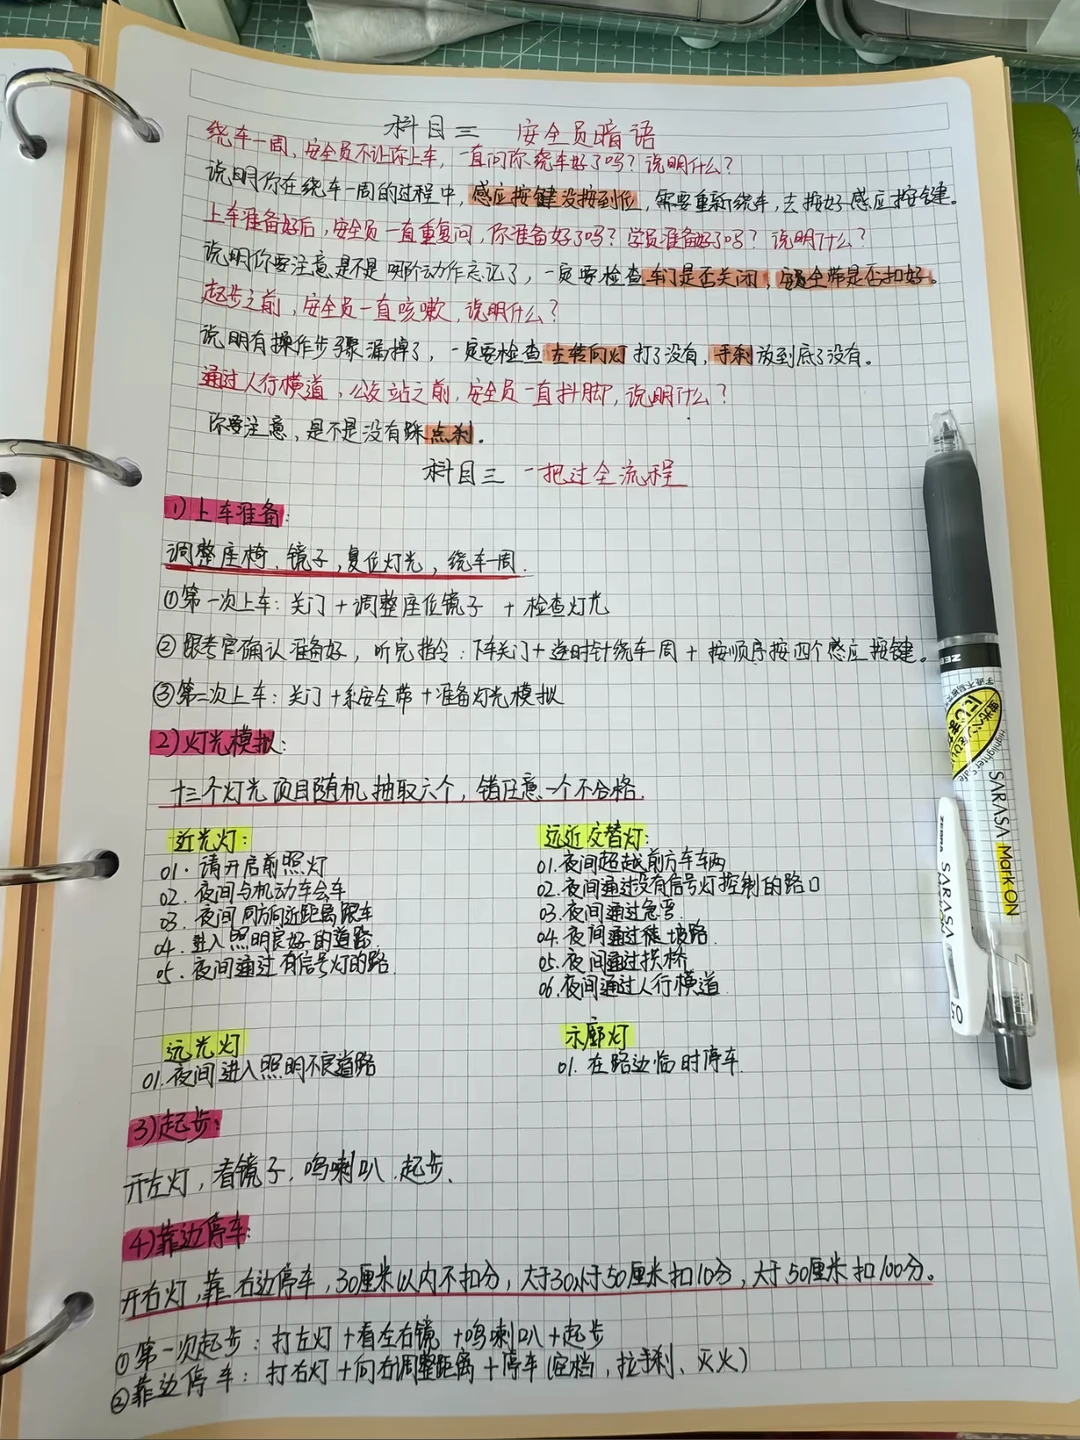 科目三 安全员暗语
绕车一周，安全员不让你上车，一直问你绕车好了吗？说明什么？
说明你在绕车一周的过程中，感应按键没按到位，需要重新绕车，去按好感应按键。
上车准备好后，安全员一直重复问，你准备好了吗？学员准备好了吗？说明什么？
说明你要注意是不是哪个动作忘记了，一定要检查车门是否关闭，安全带是否扣好。
起步之前，安全员一直咳嗽，说明什么？
说明有操作步骤漏掉了，一定要检查左转向灯打了没有，手刹放到底了没有。
通过人行横道，公交站之前，安全员一直抖脚，说明什么？
你要注意，是不是没有踩点刹。
科目三 一把过全流程
1)上车准备：
调整座椅、镜子，复位灯光，绕车一周.
①第一次上车：关门+调整座位镜子 +检查灯光
②跟考官确认准备好，听完指令：下车关门+逆时针绕车一周+按顺序按四个感应按键。
③第二次上车：关门+系安全带+准备灯光模拟
2)灯光模拟：
十三个灯光项目随机抽取六个，错任意一个不合格.
近光灯：
01.请开启前照灯
02.夜间与机动车会车
03.夜间同方向近距离跟车
04.进入照明良好的道路.
05.夜间通过有信号灯的路.
远近交替灯：
01.夜间超越前方车辆
02.夜间通过没有信号灯控制的路口
03.夜间通过急弯.
04.夜间通过陡坡路.
05.夜间通过拱桥
06.夜间通过人行横道
远光灯
01.夜间进入照明不良道路
示廓灯
01.在路边临时停车.
3)起步：
开左灯，看镜子，鸣喇叭.起步、
4)靠边停车：
开右灯，靠右边停车，30厘米以内不扣分，大于30小于50厘米扣10分，大于50厘米扣100分。
①第一次起步：打左灯+看左右镜+鸣喇叭+起步
②靠边停车：打右灯+向右调整距离+停车(空档，拉手刹、灭火)
ZEBRA
Highlighter Safe
SARASA Mark ON
ZEBRA
SARASA
0.5